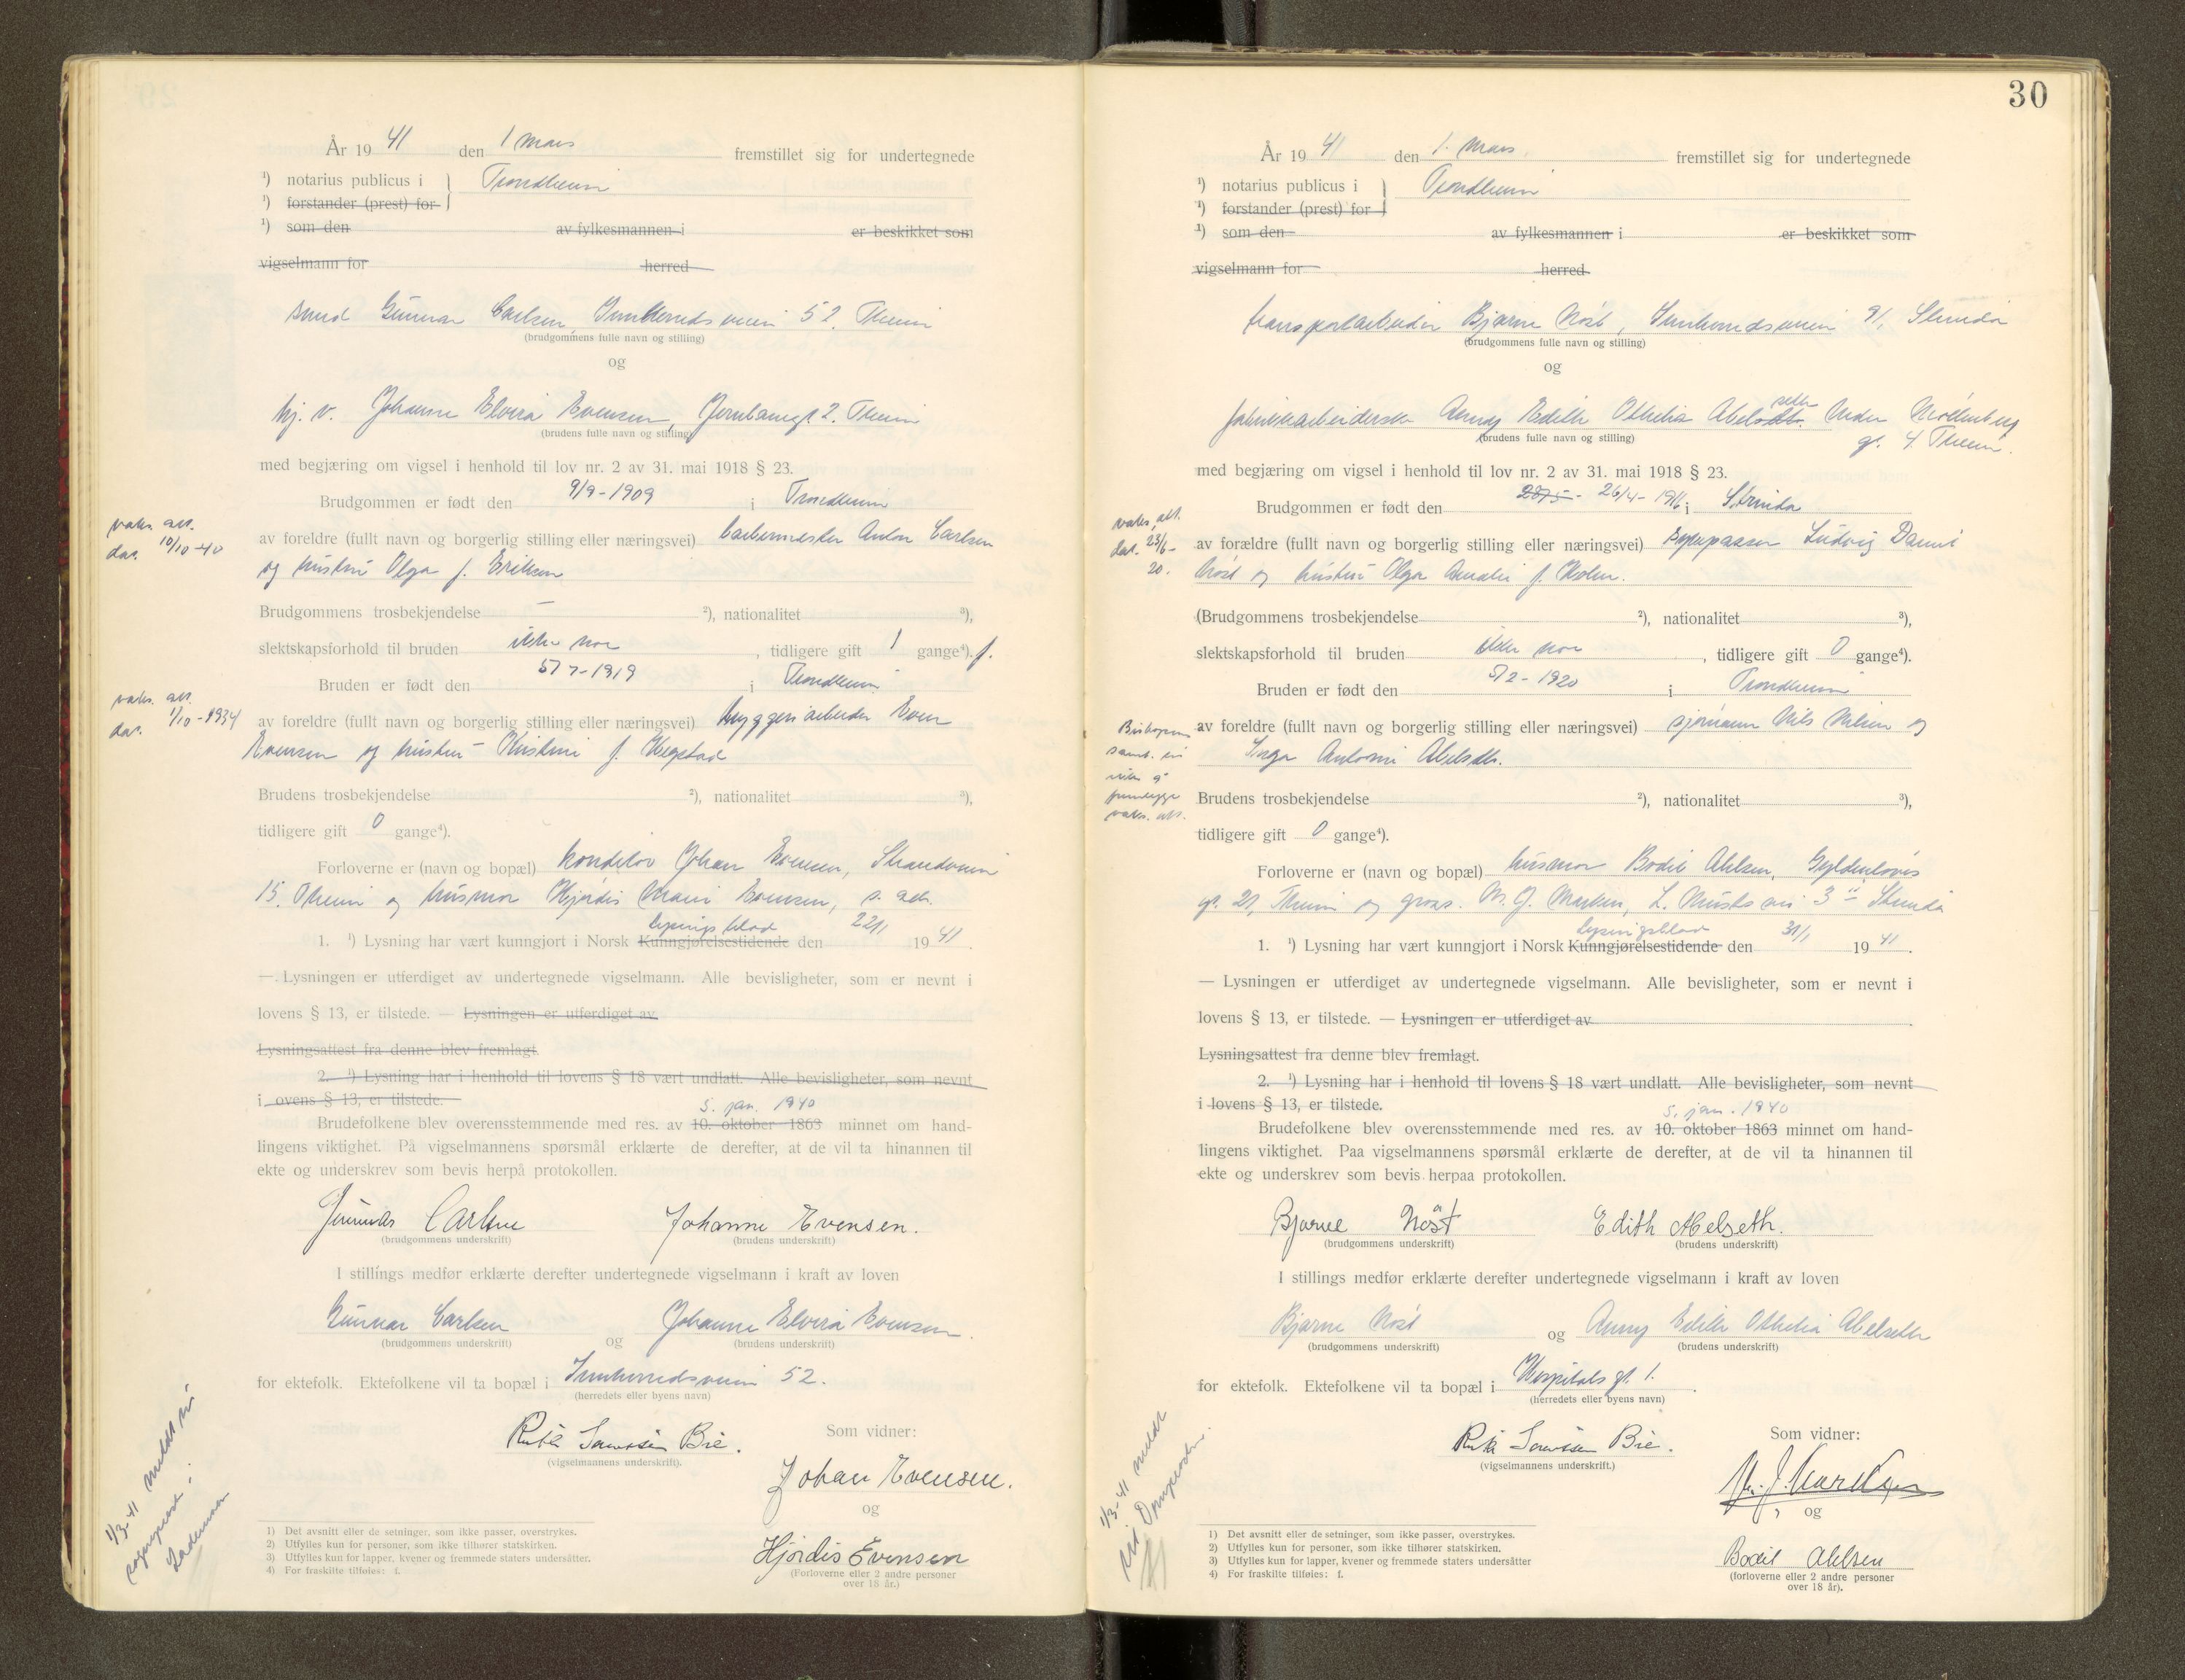 År 19 41 den 1 mars fremstillet sig for undertegnede
¹) notarius publicus i } Trondheim
¹) forstander (prest) for
¹) som den av fylkesmannen i er beskikket som
vigselmann for herred
smed Gunnar Carlsen, Innherredsveien 52. Theim
(brudgommens fulle navn og stilling)
og
hj. v. Johanne Elvira Evensen, Jernbanegt 2. Theim
(brudens fulle navn og stilling)
med begjæring om vigsel i henhold til lov nr. 2 av 31. mai 1918 § 23.
Brudgommen er født den 9/9-1909 i Trondheim
vaks. att.
dat. 10/10-40
av foreldre (fullt navn og borgerlig stilling eller næringsvei) barbermester Anton Carlsen
og hustru Olga f. Eriksen
Brudgommens trosbekjendelse — ²), nationalitet ³),
slektskapsforhold til bruden ikke noe , tidligere gift 1 gange⁴). f.
Bruden er født den 5/7-1919 i Trondheim
vaks. att.
dat. 1/10-1934
av foreldre (fullt navn og borgerlig stilling eller næringsvei) bryggeriarbeider Even
Evensen og hustru Kristine f. Hegstad
Brudens trosbekjendelse ²), nationalitet ³),
tidligere gift 0 gange⁴).
Forloverne er (navn og bopæl) konditor Johan Evensen, Strandveien
15, Theim og husmor Hjørdis Marie Evensen, s. adr.
lysingsblad
1. ¹) Lysning har vært kunngjort i Norsk Kunngjørelsestidende den 22/1 19 41.
—. Lysningen er utferdiget av undertegnede vigselmann. Alle bevisligheter, som er nevnt i
lovens § 13, er tilstede. — Lysningen er utferdiget av
Lysningsattest fra denne blev fremlagt.
2. ¹) Lysning har i henhold til lovens § 18 vært undlatt. Alle bevisligheter, som nevnt
i ovens § 13, er tilstede.
5. jan. 1940
Brudefolkene blev overensstemmende med res. av 10. oktober 1863 minnet om hand-
lingens viktighet. På vigselmannens spørsmål erklærte de derefter, at de vil ta hinannen til
ekte og underskrev som bevis herpå protokollen.
Gunnar Carlsen Johanne Evensen.
(brudgommens underskrift) (brudens underskrift)
I stillings medfør erklærte derefter undertegnede vigselmann i kraft av loven
Gunnar Carlsen og Johanne Elvira Evensen.
(brudgommens underskrift) (brudens underskrift)
for ektefolk. Ektefolkene vil ta bopæl i Innherredsveien 52.
(herredets eller byens navn)
Som vidner:
(vigselmannens underskrift).
Johan Evensen.
og
Hjørdis Evensen
(Forloverne eller 2 andre personer
over 18 år.)
1/3-41 meldt til
sogneprest i
Lademoen
1) Det avsnitt eller de setninger, som ikke passer, overstrykes.
2) Utfylles kun for personer, som ikke tilhører statskirken.
3) Utfylles kun for lapper, kvener og fremmede staters undersåtter.
4) For fraskilte tilføies: f.
30
År 19 41 den 1. mars. fremstillet sig for undertegnede
¹) notarius publicus i } Trondheim
¹) forstander (prest) for
¹) som den av fylkesmannen i er beskikket som
vigselmann for herred
transportarbeider Bjarne Nöst, Innherredsveien 91, Strinda
(brudgommens fulle navn og stilling)
og
seth
fabrikkarbeiderske Anny Edith Othelia Abelsdtr. Nedre Möllenberg
gt. 4. Theim.
(brudens fulle navn og stilling)
med begjæring om vigsel i henhold til lov nr. 2 av 31. mai 1918 § 23.
Brudgommen er født den 26/4-1916 i Strinda
vaks. att.
dat. 23/6-
20.
av forældre (fullt navn og borgerlig stilling eller næringsvei) Ludvig Daniel
Nöst og hustru Olga Amalie f. Holen.
(Brudgommens trosbekjendelse ²), nationalitet ³),
slektskapsforhold til bruden ikke noe , tidligere gift 0 gange⁴).
Bruden er født den 5/2-1920 i Trondheim
av foreldre (fullt navn og borgerlig stilling eller næringsvei) sjömann Nils Nilsen og
Inga Antonie Abelsdtr.
Biskopens
samt. til
ikke å
fremlegge
vaks. att.
Brudens trosbekjendelse ²), nationalitet ³),
tidligere gift 0 gange⁴).
Forloverne er (navn og bopæl) husmor Bodil Ahlsen, Gyldenlöves
gt. 21, Theim og gross. M. J. Strinda
Lysingsblad
1. ¹) Lysning har vært kunngjort i Norsk Kunngjørelsestidende den 31/1 19 41.
— Lysningen er utferdiget av undertegnede vigselmann. Alle bevisligheter, som er nevnt i
lovens § 13, er tilstede. — Lysningen er utferdiget av
Lysningsattest fra denne blev fremlagt.
2. ¹) Lysning har i henhold til lovens § 18 vært undlatt. Alle bevisligheter, som nevnt
i lovens § 13, er tilstede.
5. jan. 1940
Brudefolkene blev overensstemmende med res. av 10. oktober 1863 minnet om hand-
lingens viktighet. Paa vigselmannens spørsmål erklærte de derefter, at de vil ta hinannen til
ekte og underskrev som bevis herpaa protokollen.
Bjarne Nöst Edith Abelseth.
(brudgommens underskrift) (brudens underskrift)
I stillings medfør erklærte derefter undertegnede vigselmann i kraft av loven
Bjarne Nöst og Anny Edith Othelia Abelseth
(brudgommens underskrift) (brudens underskrift)
for ektefolk. Ektefolkene vil ta bopæl i Hospitalsgt. 1.
(herredets eller byens navn)
Som vidner:
(vigselmannens underskrift.)
og
Bodil Ahlsen
(forloverne eller 2 andre personer
over 18 år).
1/3-41 meldt
til Domprosten.
1) Det avsnitt eller de setninger, som ikke passer, overstrykes.
2) Utfylles kun for personer, som ikke tilhører statskirken.
3) Utfylles kun for lapper, kvener og fremmede staters undersåtter
4) For fraskilte tilføies: f.